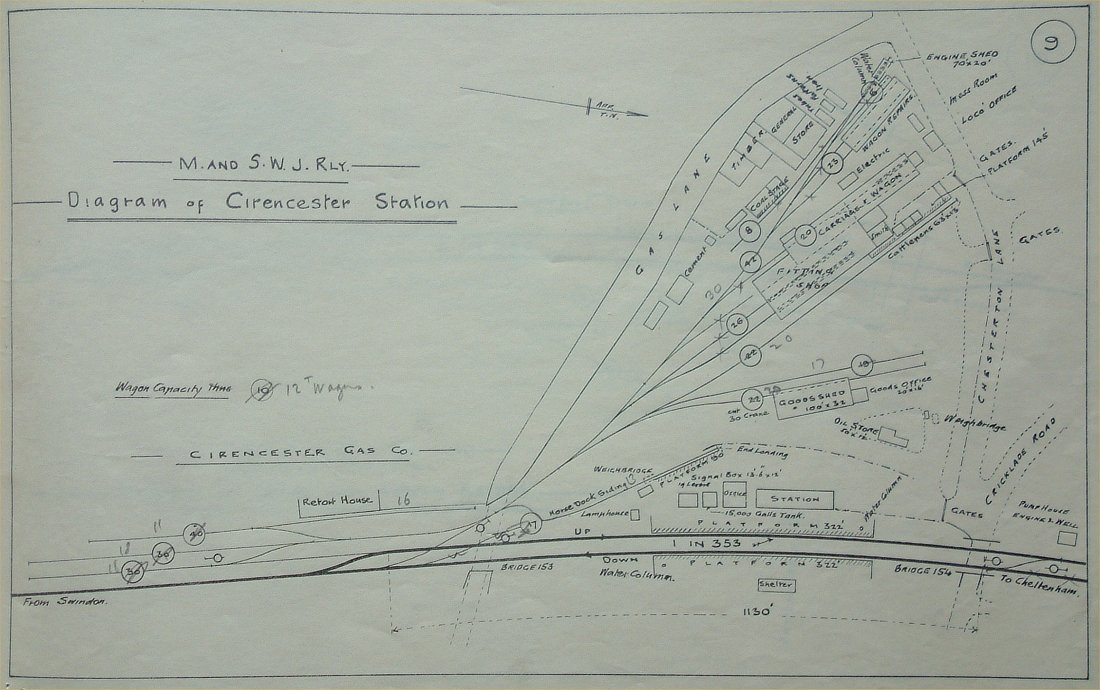 9
M. AND S. W. J. RLY.
Diagram of Cirencester Station
APP.
T.N.
ENGINE SHED
70'x20'
Mess Room
LOCO' OFFICE
GATES.
PLATFORM 145'
GATES.
CHESTERTON LANE
Water
Column
WAGON REPAIRS
GENERAL
STORE
TIMBER.
COAL STAGE
Electric
CARRIAGE & WAGON
Smith
Cattle Pens 63'x13'
23
8
20
42
Cement
GAS LANE
FITTING
SHOP
30
26
22
20
17
18
22
30
GOODS SHED
100'x32'
Goods Office
Cwt
30 Crane
OIL STORE
Weighbridge
CRICKLADE ROAD
Wagon Capacity thus 10 12T Wagon.
CIRENCESTER GAS Co.
Retort House
16
WEIGHBRIDGE
PLATFORM
End Landing
Signal Box
Office
STATION
Horse Dock Siding
Lamphouse
15,000 Galls Tank.
Water Column
PLATFORM 322'
UP
1 IN 353
GATES
PUMP HOUSE
ENGINE & WELL
11
18
BRIDGE 153
DOWN
Water Column.
PLATFORM 322'
BRIDGE 154
To Cheltenham.
Shelter
From Swindon.
1130'